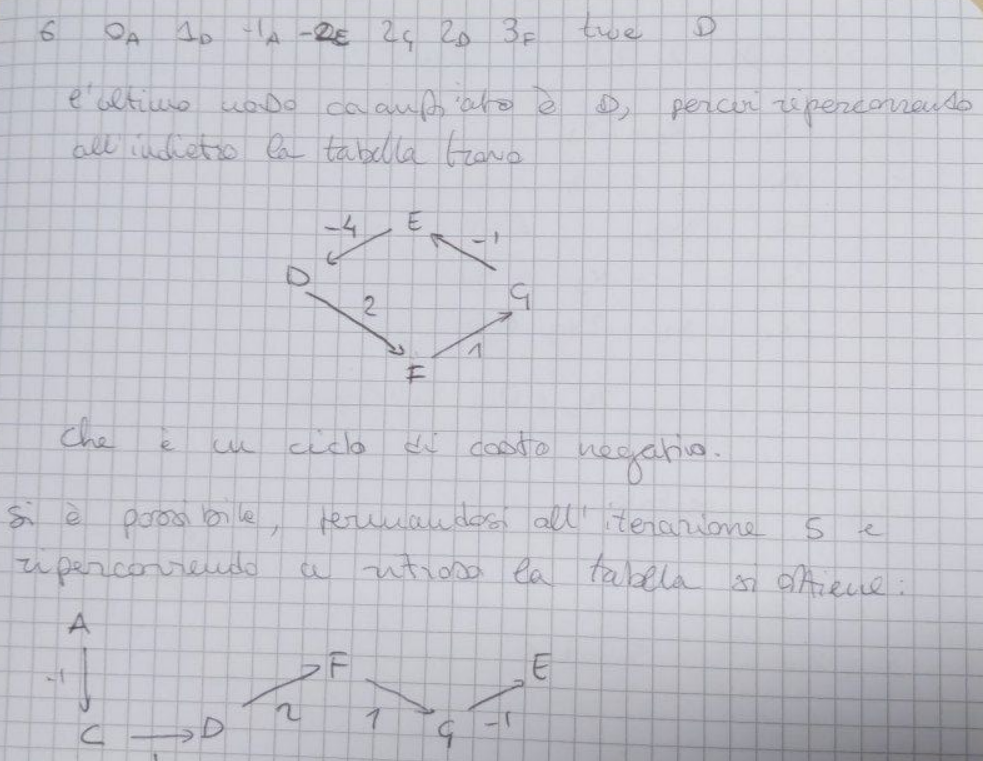 6 0A 1D -1A -2E 2G 2D 3F true D
l'ultimo nodo cambiato è D, perciò ripercorrendo
all'indietro la tabella trovo
-4 E -1
D G
2 1
F
che è un ciclo di costo negativo.
Si è possibile, fermandosi all'iterazione 5 e
ripercorrendo a ritroso la tabella si ottiene:
A
-1 F E
2 1 -1
C D G
1